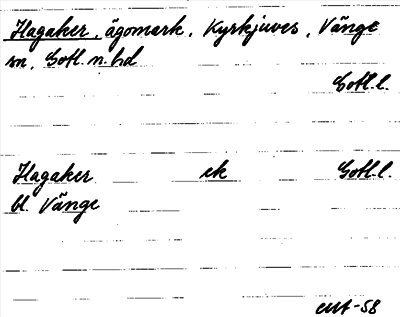 Hagaker, ägomark, Kyrkjuves, Vänge
sn, Gotl. n. hd
Gotl. l.
Hagaker ek Gotl. l.
bl. Vänge
-58